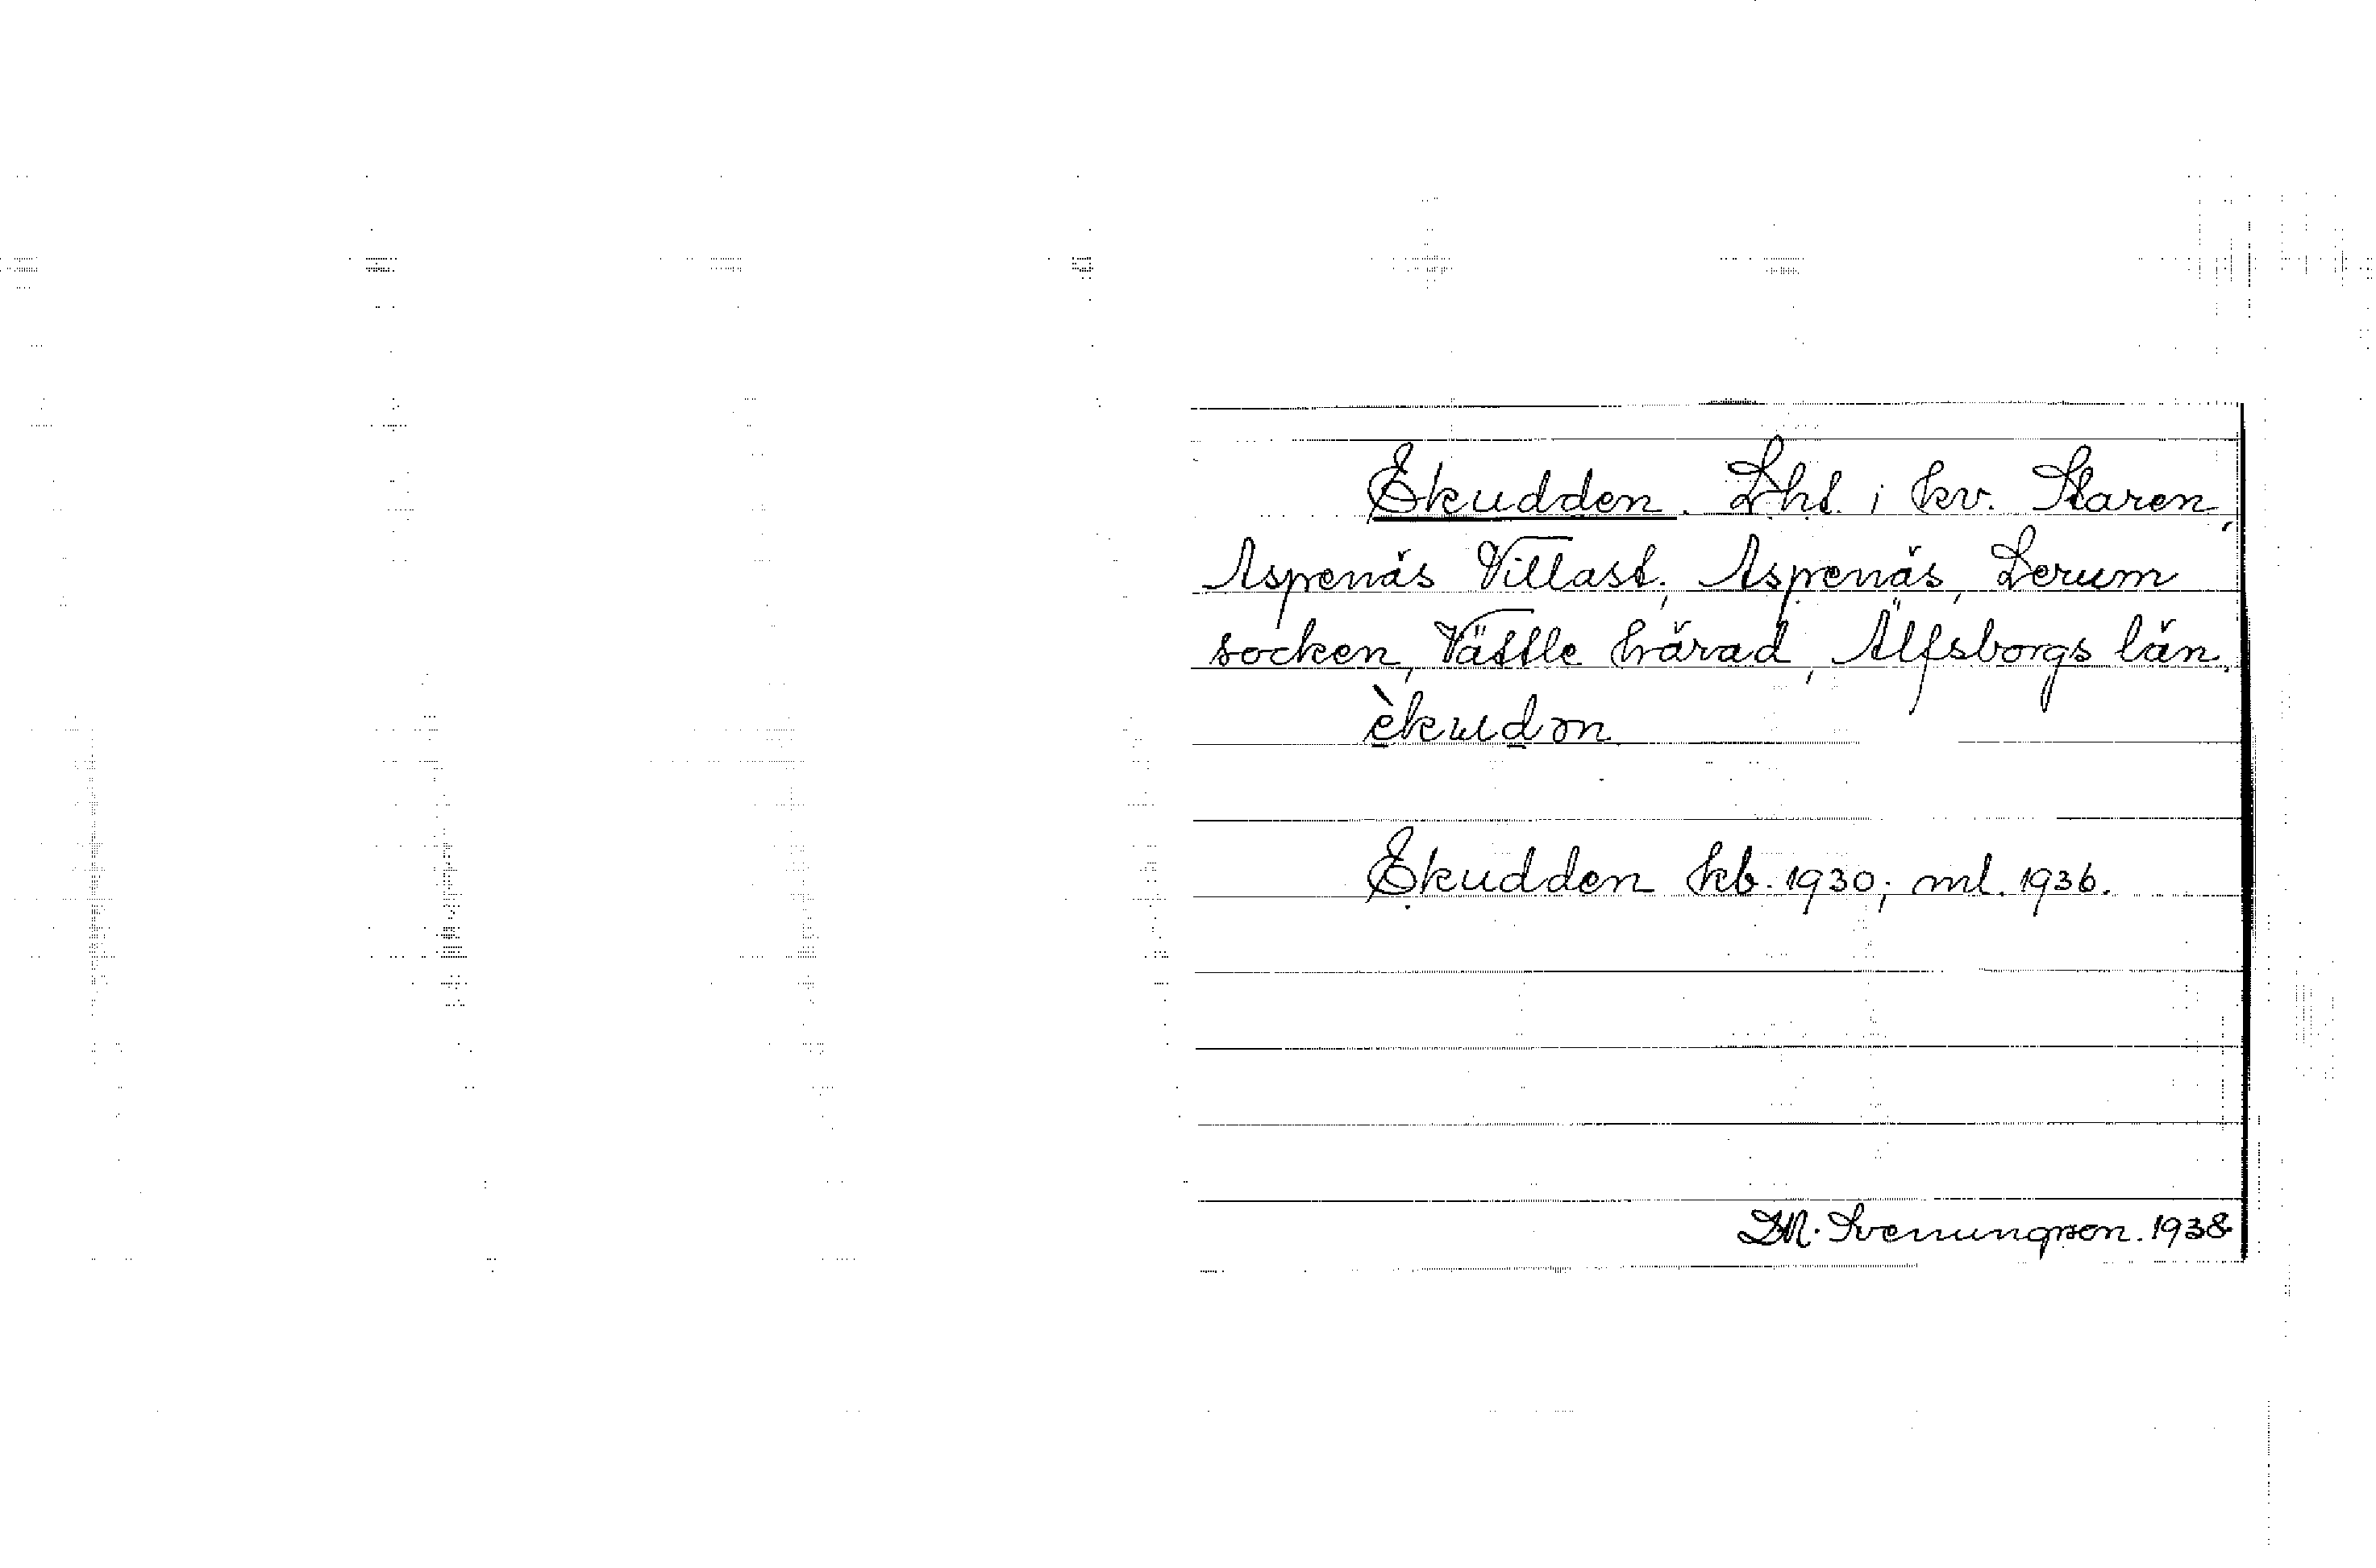 Ekudden. Lht. i kv. Staren,
Aspenäs Villast., Aspenäs, Lerum
socken, Vättle härad, Älfsborgs län.
èkudən
Ekudden kb. 1930; ml. 1936.
D.M. Svenungson. 1938